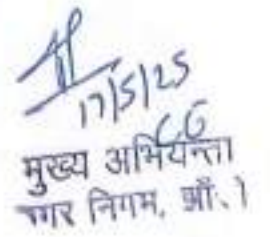 17/5/25
CG
मुख्य अभियन्ता
नगर निगम, झाँ